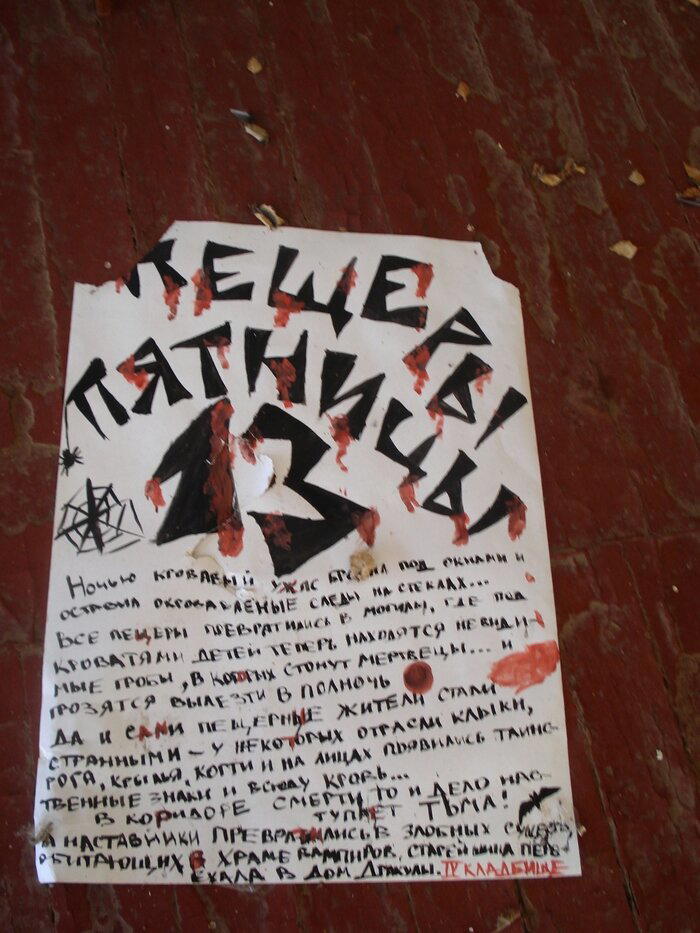 ПЕЩЕРЫ
ПЯТНИЦЫ
13
Ночью кровавый ужас бродил под окнами и
оставил окровавленые следы на стеклах...
Все пещеры превратились в могилы, где под
кроватями детей теперь находятся невиди-
мые гробы, в которых стонут мертвецы... и
грозятся вылезти в полночь
Да и сами пещерные жители стали
странными – у некоторых отрасли клыки,
рога, крылья, когти и на лицах появились таинс-
твенные знаки и всюду кровь...
В коридоре смерти то и дело нас-
тупает тьма!
А наставники превратились в злобных существ,
обитающих в храме вампиров. Старейшина пере-
ехала в дом Дракулы. IV КЛАДБИЩЕ